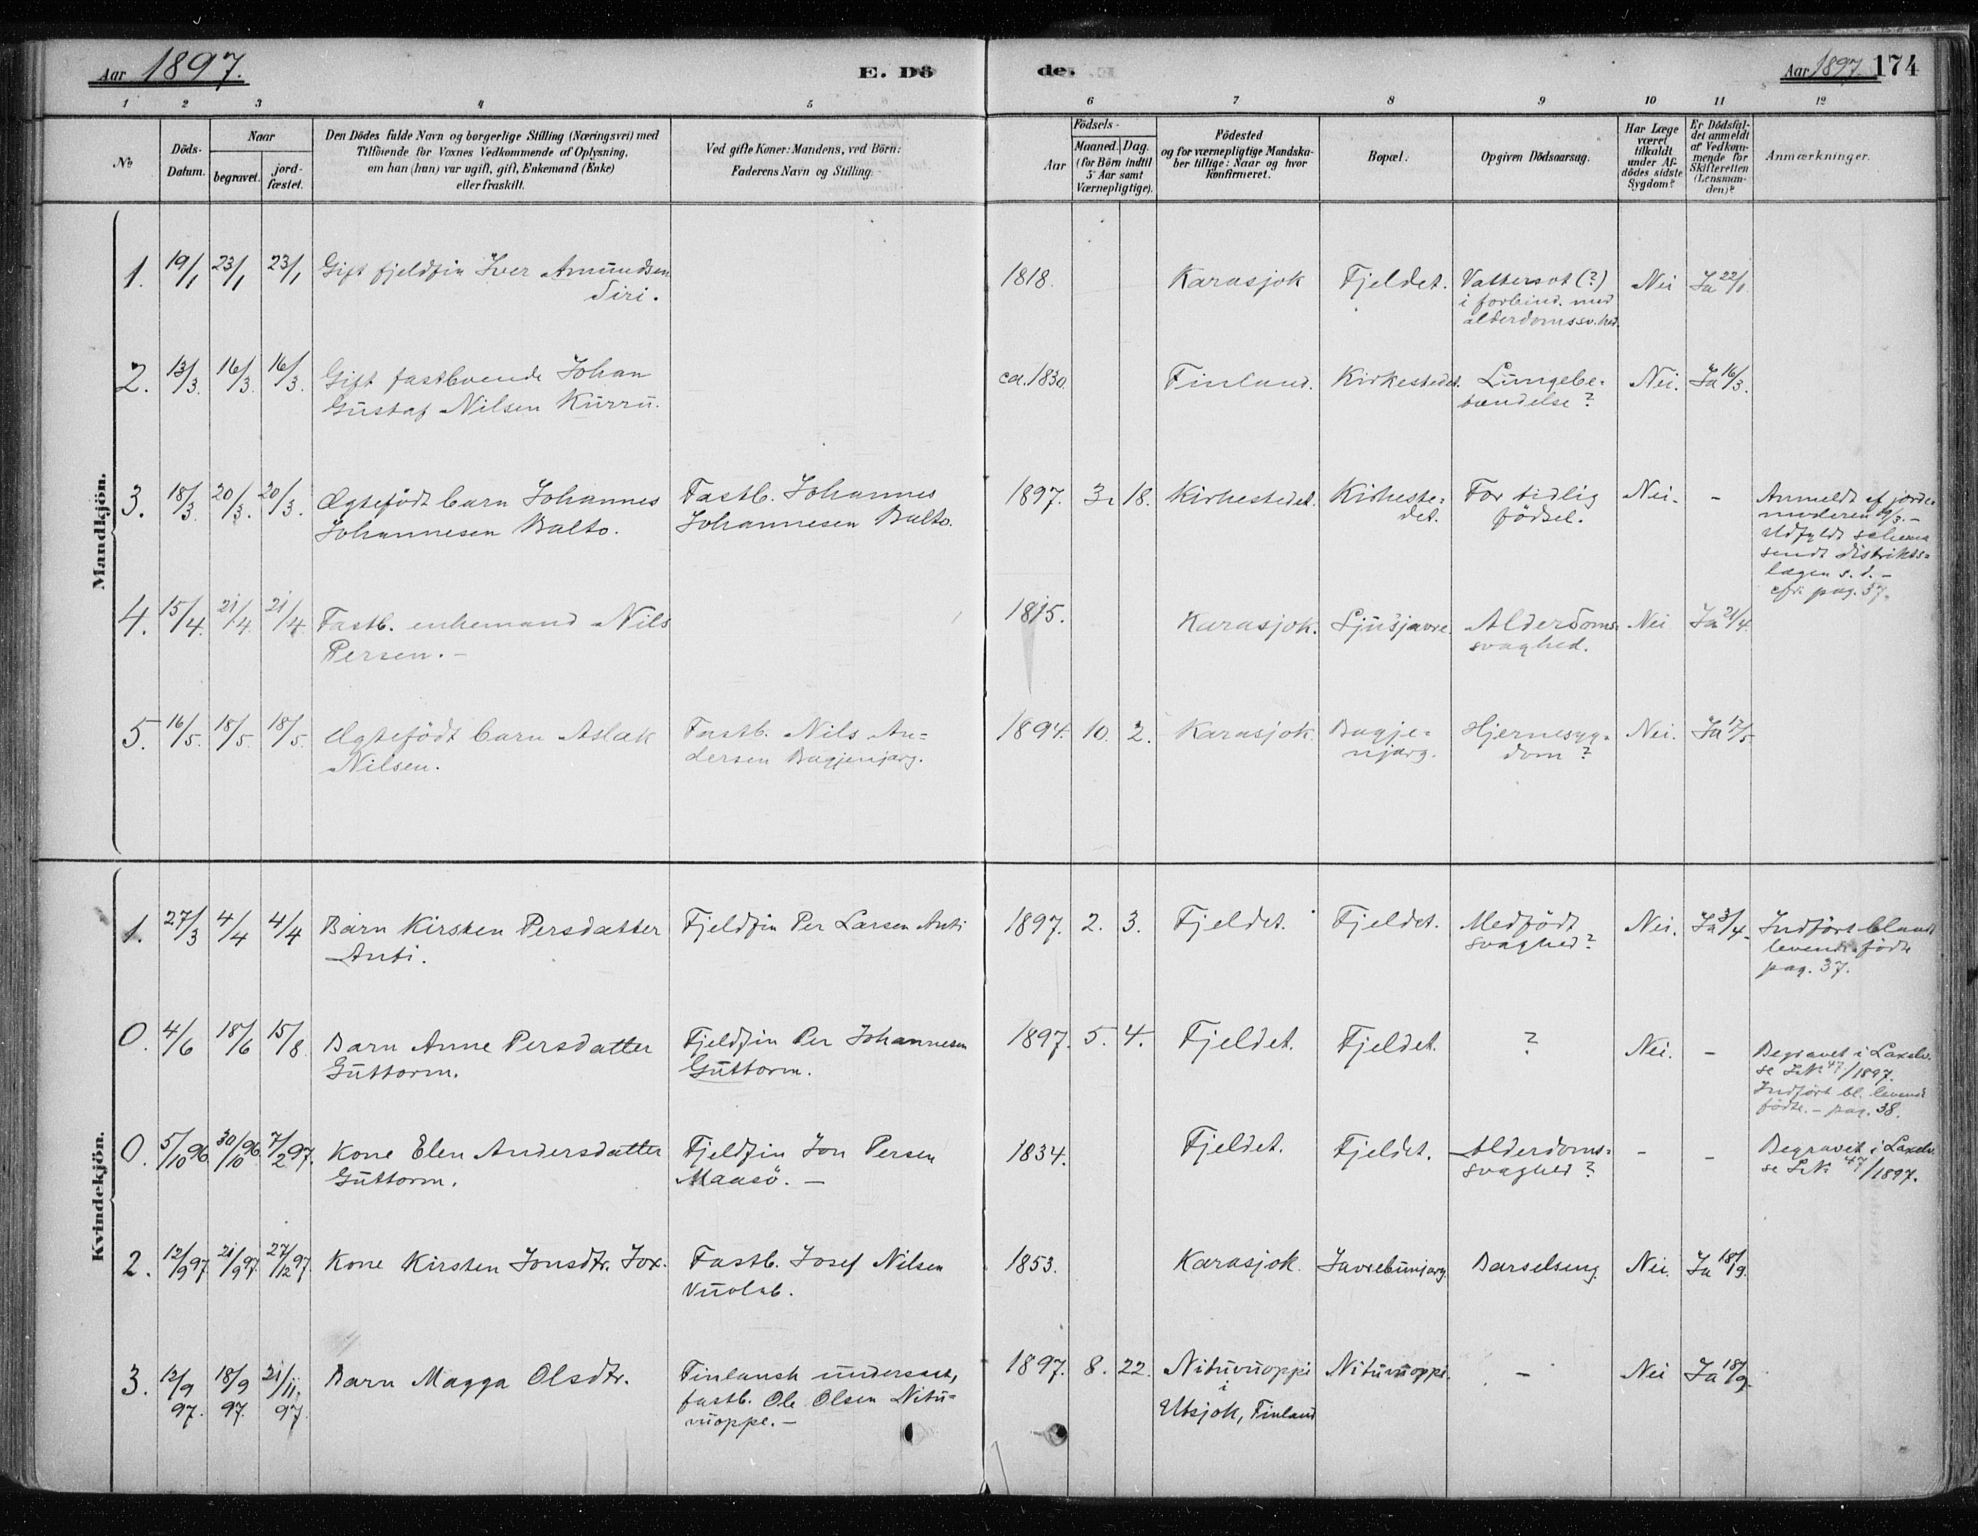 Aar 1897.
E. Dö
de.
Aar 1897. 174
1 2 3 4 5 6 7 8 9 10 11 12
No
Döds-
Datum.
Naar
begravet.
jord-
fæstet.
Den Dödes fulde Navn og borgerlige Stilling (Næringsvei) med
Tilföiende for Voxnes Vedkommende af Oplysning,
om han (hun) var ugift, gift, Enkemand (Enke)
eller fraskilt.
Ved gifte Koner: Mandens, ved Börn:
Faderens Navn og Stilling.
Födsels-
Aar
Maaned. Dag.
(for Börn indtil
5 Aar samt
Værnepligtige).
Födested
og for værnepligtige Mandska-
ber tillige: Naar og hvor
Konfirmeret.
Bopæl.
Opgiven Dödsaarsag.
Har Læge
været
tilkaldt
under Af-
dödes sidste
Sygdom?
Er Dödsfal-
det anmeldt
af Vedkom-
mende for
Skifteretten
(Lensman-
den)?
Anmærkninger.
Mandkjön.
1. 19/1 23/1 23/1 Gift fjeldfin Iver Amundsen
Siri.
1818. Karasjok Fjeldet. Vattersot (?)
i forbind. med
alderdomssv.hed.
Nei Ja 22/1.
2. 13/3. 16/3. 16/3. Gift fastboende Johan
Gustaf Nilsen Kurru.
ca. 1830. Finland. Kirkestedet. Lungebe-
tændelse?
Nei. Ja 16/3.
3. 18/3. 20/3. 20/3. Ægtefödt barn Johannes
Johannesen Balto.
Fastb. Johannes
Johannesen Balto.
1897. 3. 18. Kirkestedet. Kirkeste-
det.
For tidlig
födsel.
Nei. -
Anmeldt af jorde-
moderen /3. -
Udfyldt schema
sendt distrikts-
lægen s. d. -
cfr. pag. 37.
4. 15/4. 21/4. 21/4. Fastb. enkemand Nils
Persen. -
1815. Karasjok. Ljusjavre. Alderdoms-
svaghed.
Nei Ja 21/4.
5. 16/5. 18/5. 18/5. Ægtefödt barn Aslak
Nilsen.
Fastb. Nils An-
dersen Bagjenjarg.
1894. 10. 2. Karasjok. Bagje-
njarg.
Hjernesyg-
dom?
Nei. Ja 17/5
Kvindekjön.
1. 27/3 4/4 4/4 Barn Kirsten Persdatter
Anti.
Fjeldfin Per Larsen Anti
1897. 2. 3. Fjeldet. Fjeldet. Medfödt
svaghed?
Nei. Ja 3/4.
Indfört blandt
levende födte
pag. 37.
0. 4/6 18/6 15/8 Barn Anne Persdatter
Guttorm.
Fjeldfin Per Johannesen
Guttorm.
1897. 5. 4. Fjeldet. Fjeldet. ? Nei. -
Begravet i Laxelv.
se 47/1897.
Indfört bl. levende
födte. - pag. 38.
0. 5/10 96. 30/10 96 7/2 97. Kone Elen Andersdatter
Guttorm.
Fjeldfin Jon Persen
Maasö. -
1834. Fjeldet. Fjeldet. Alderdoms-
svaghed?
- -
Begravet i Laxelv.
se 47/1897.
2. 12/9 97 21/9 97. 27/12 97. Kone Kirsten Jonsdtr. Jox.
Fastb. Josef Nilsen
Vuolab.
1853. Karasjok. Javrebunjarg. Barselseng. Nei. Ja 18/9.
3. 12/9 97. 18/9 97. 21/11. 97. Barn Magga Olsdtr.
Finlansk undersaat,
fastb. Ole Olsen Nitu-
vuoppe. -
1897. 8. 22. Nituvuoppi
i
Utsjok, Finland
Nituvuoppi. - Nei Ja 18/9.